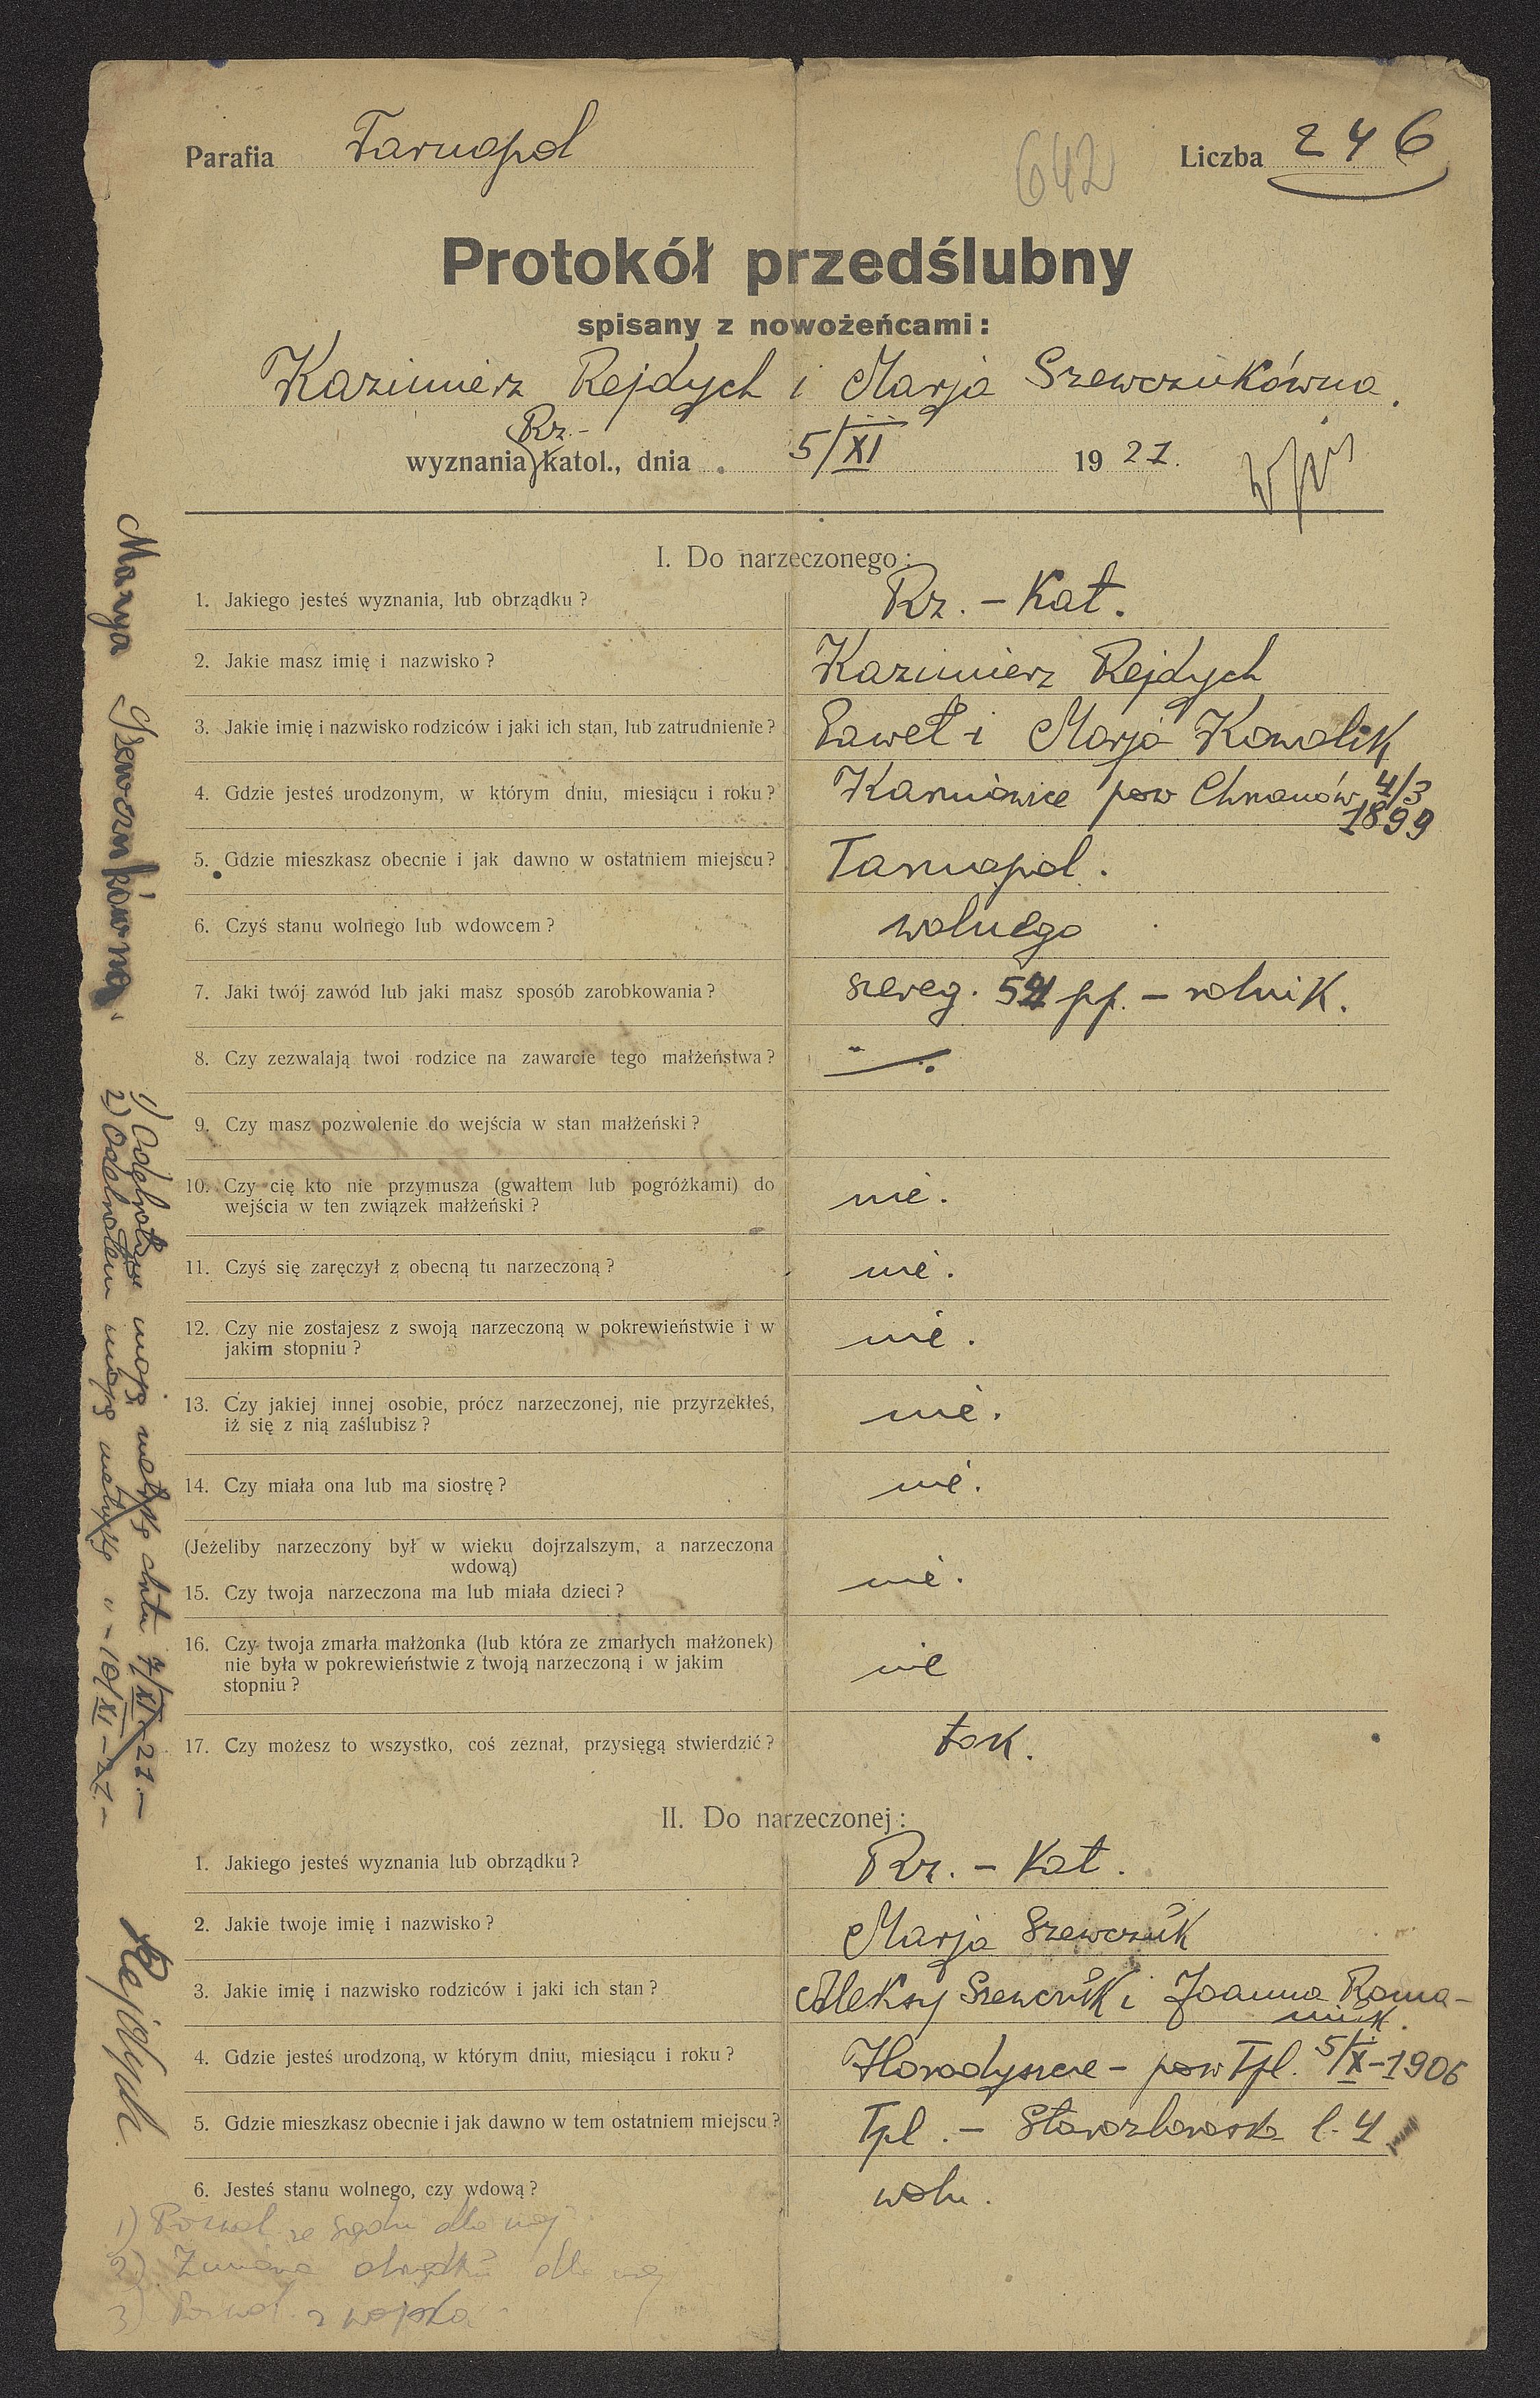 Parafia Tarnopol
642
Liczba 246
Protokół przedślubny
spisany z nowożeńcami:
Kazimierz Rejdych i Marja Szewczukówna.
Rz.-
wyznania katol., dnia 5/XI 1921.
I. Do narzeczonego:
1. Jakiego jesteś wyznania, lub obrządku? Rz. - Kat.
2. Jakie masz imię i nazwisko? Kazimierz Rejdych
3. Jakie imię i nazwisko rodziców i jaki ich stan, lub zatrudnienie? Paweł i Marja Kowalik
4. Gdzie jesteś urodzonym, w którym dniu, miesiącu i roku? Karniowice pow Chrzanów 4/3
1899
5. Gdzie mieszkasz obecnie i jak dawno w ostatniem miejscu? Tarnopol.
6. Czyś stanu wolnego lub wdowcem? wolnego
7. Jaki twój zawód lub jaki masz sposób zarobkowania? szereg. 54 pp. - rolnik.
8. Czy zezwalają twoi rodzice na zawarcie tego małżeństwa?
9. Czy masz pozwolenie do wejścia w stan małżeński?
10. Czy cię kto nie przymusza (gwałtem lub pogróżkami) do
wejścia w ten związek małżeński? nie.
11. Czyś się zaręczył z obecną tu narzeczoną? nie.
12. Czy nie zostajesz z swoją narzeczoną w pokrewieństwie i w
jakim stopniu? nie.
13. Czy jakiej innej osobie, prócz narzeczonej, nie przyrzekłeś,
iż się z nią zaślubisz? nie.
14. Czy miała ona lub ma siostrę? nie.
(Jeżeliby narzeczony był w wieku dojrzalszym, a narzeczona
wdową)
15. Czy twoja narzeczona ma lub miała dzieci? nie.
16. Czy twoja zmarła małżonka (lub która ze zmarłych małżonek)
nie była w pokrewieństwie z twoją narzeczoną i w jakim
stopniu? nie
17. Czy możesz to wszystko, coś zeznał, przysięgą stwierdzić? tak.
II. Do narzeczonej:
1. Jakiego jesteś wyznania lub obrządku? Rz. - Kat.
2. Jakie twoje imię i nazwisko? Marja Szewczuk
3. Jakie imię i nazwisko rodziców i jaki ich stan? Aleksy Szewczuk i Joanna Roma-
niuk.
4. Gdzie jesteś urodzoną, w którym dniu, miesiącu i roku? Horodyszcze - pow Tpl. 5/X-1906
5. Gdzie mieszkasz obecnie i jak dawno w tem ostatniem miejscu? Tpl. - Starozborowska l. 4
6. Jesteś stanu wolnego, czy wdową? woln.
1) Pozwol. ze Sądu dla niej
2) Zmiana obrządku dla niej
3) Pozwol. z wojska
Marya Szewczukówna.
1) Odebrałam moją metrykę chrztu 7/XI-21.-
2) Odebrałem moją metrykę " - 10/XI-21.-
Rejdych.